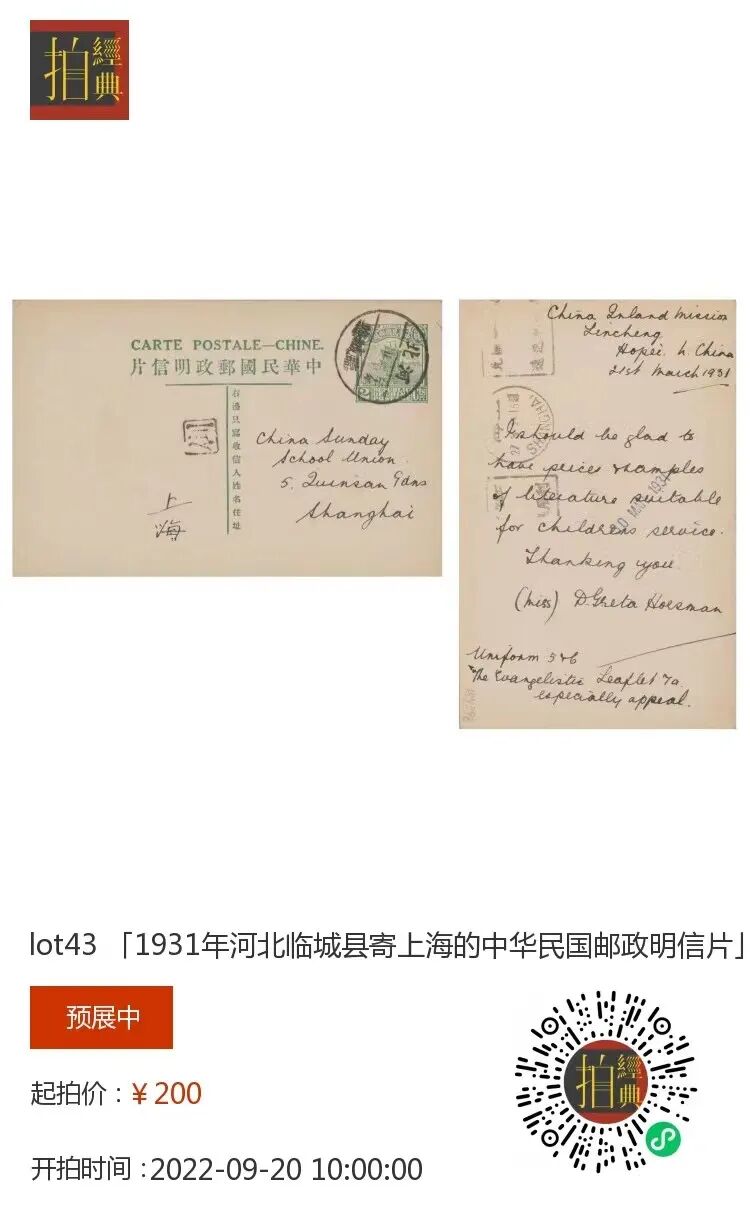 拍
經典
CARTE POSTALE—CHINE.
片信明政郵國民華中
右邊只寫收信人姓名住址
China Sunday
School Union
5. Quinsan Gdns
Shanghai
上海
China Inland Mission
Lincheng
Hopei. N. China
21st March 1931
I should be glad to
have prices & samples
of literature suitable
for childrens service.
Thanking you
(Miss) D. Greta Horsman
Uniform 5&6
The Evangelistic Leaflet 7a.
especially appeal.
lot43 「1931年河北临城县寄上海的中华民国邮政明信片」
预展中
起拍价：¥ 200
开拍时间：2022-09-20 10:00:00
拍
經典